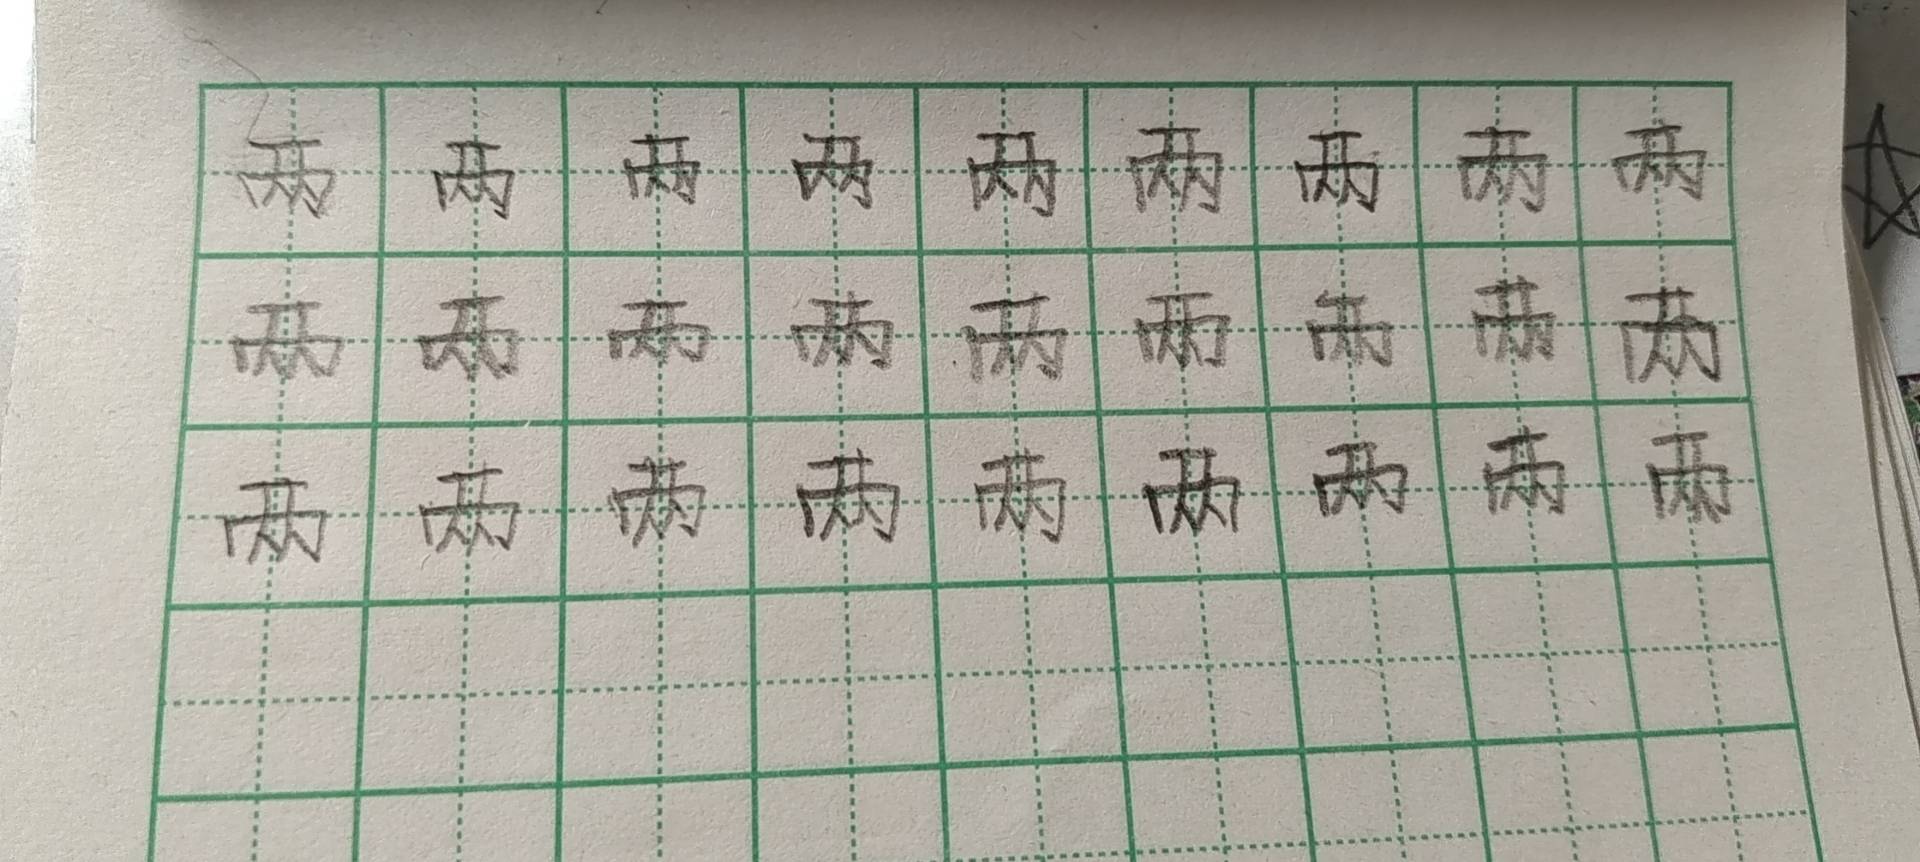 两两两两两两两两两
两两两两两两两两两
两两两两两两两两两